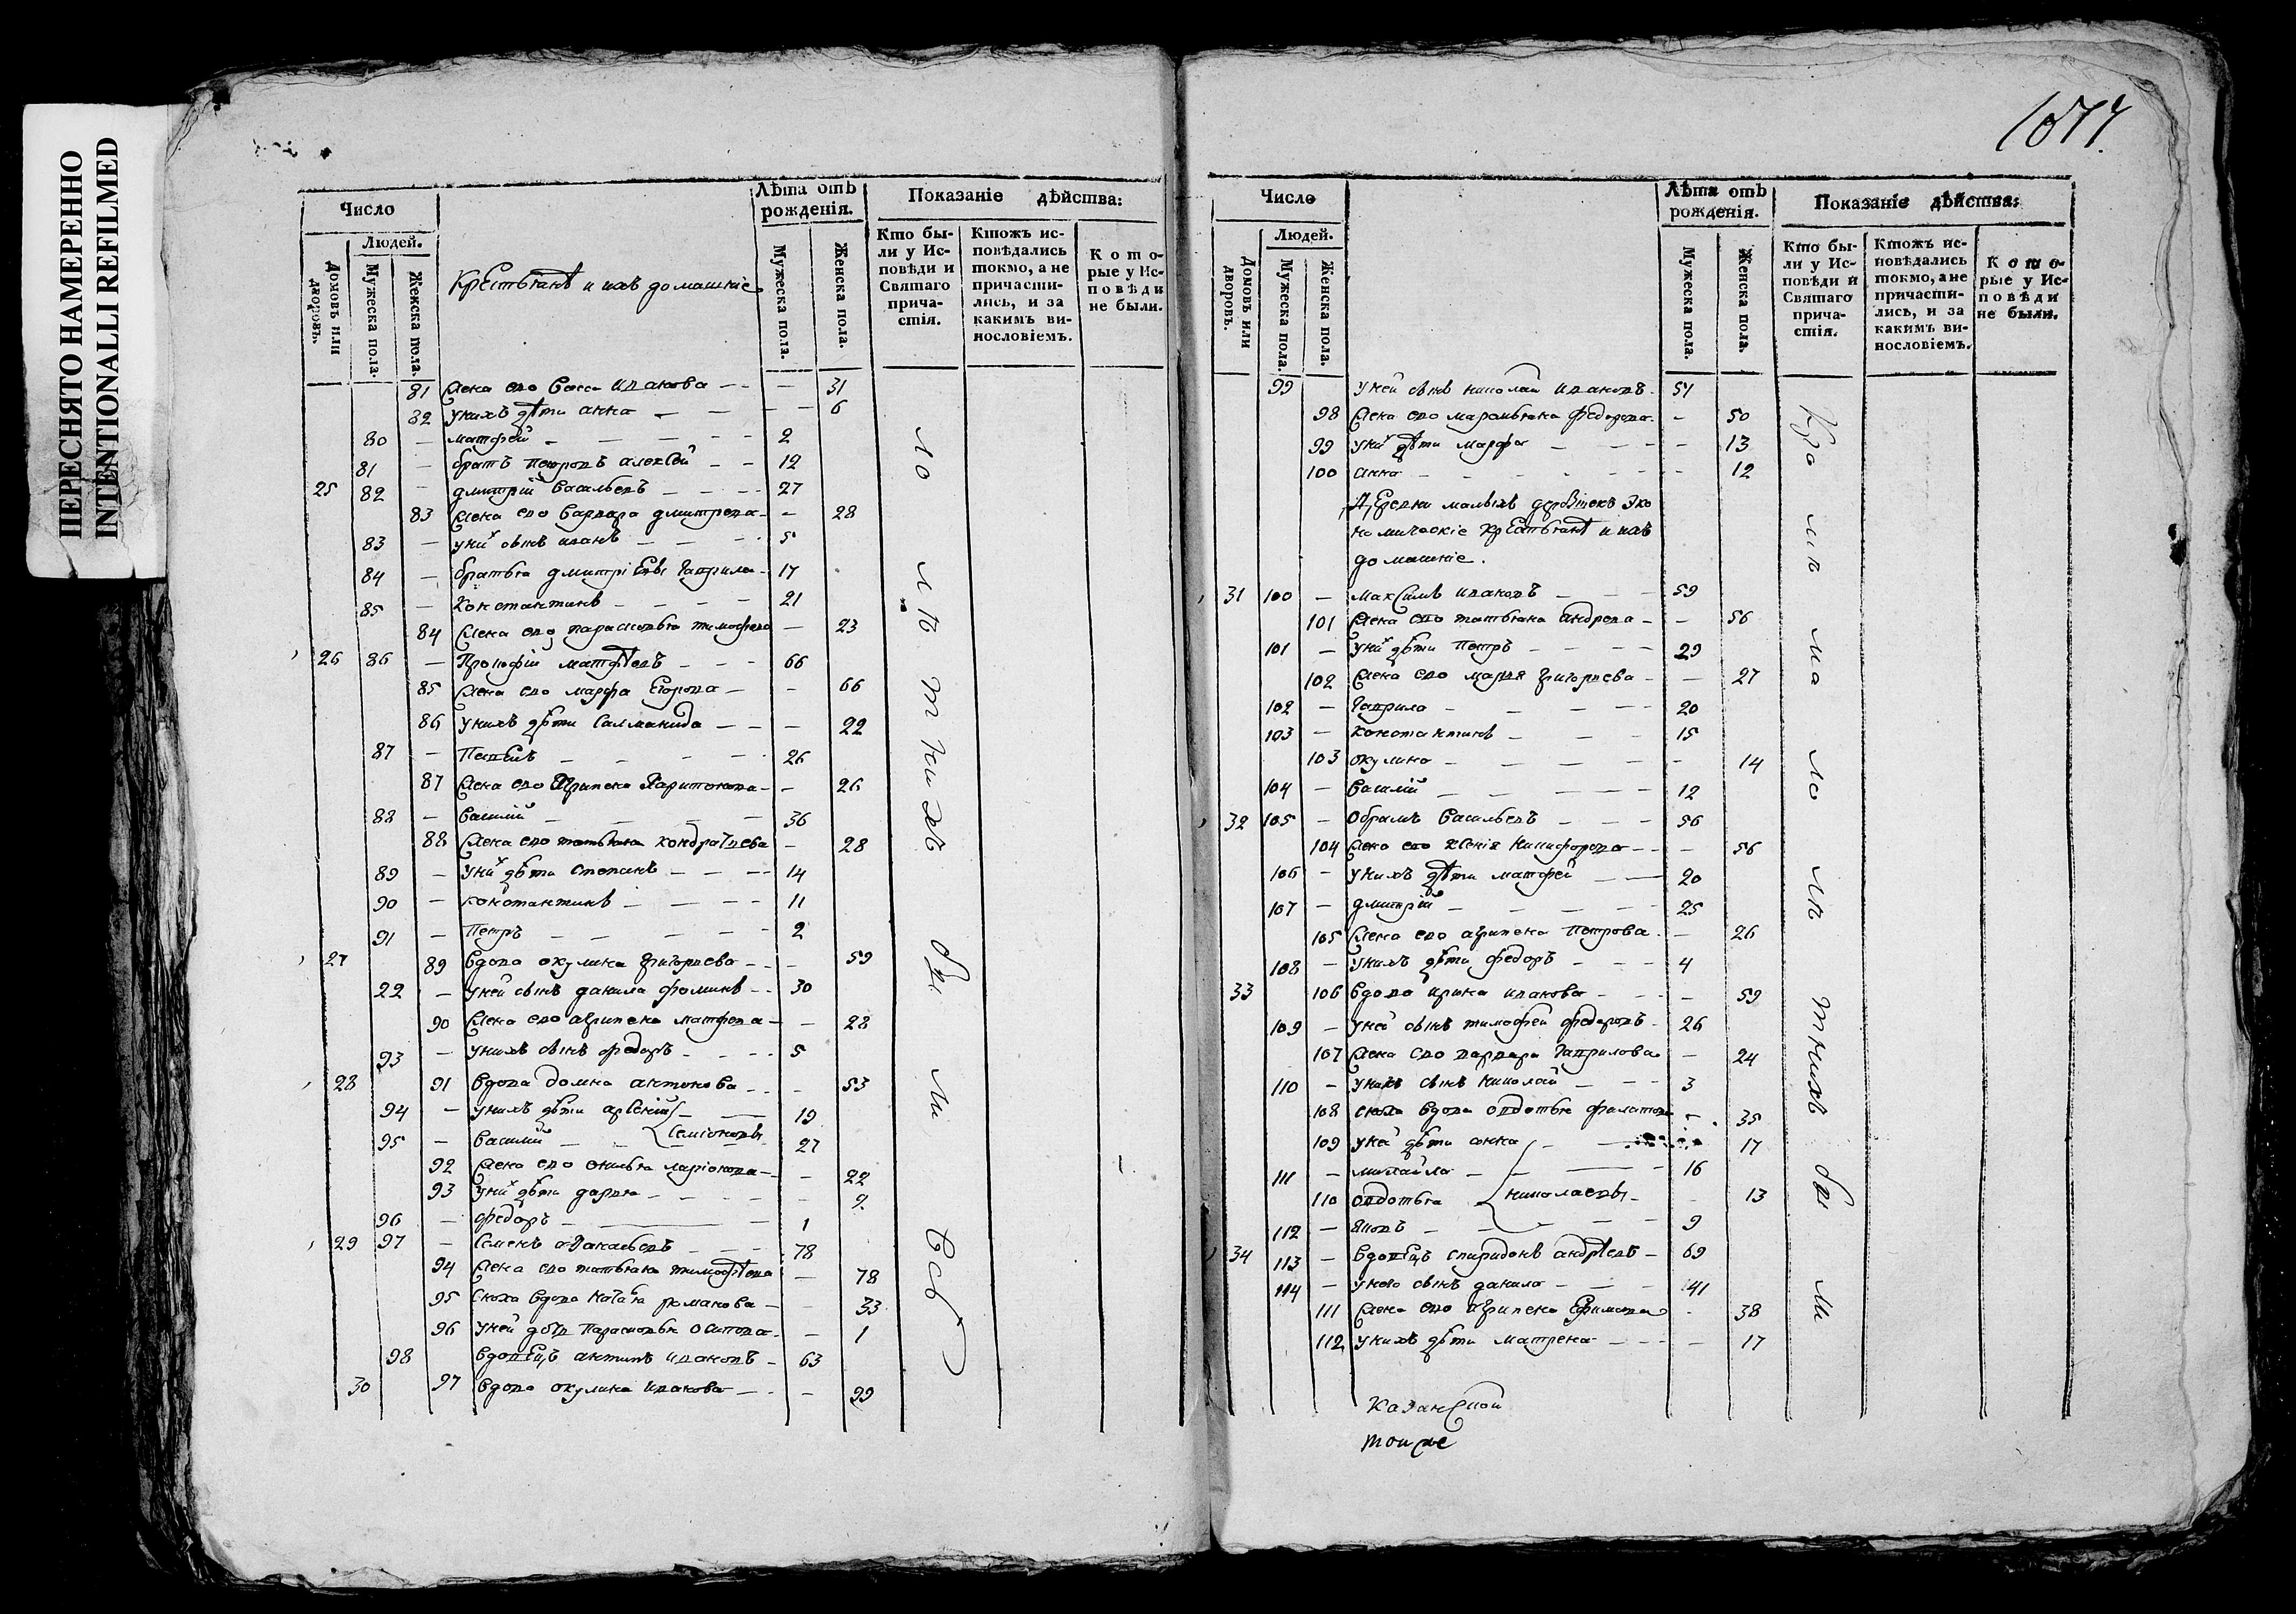 ПЕРЕСНЯТО НАМЕРЕННО
INTENTIONALLI REFILMED
1077
Число
Людей.
Домовъ или дворовъ.
Мужеска пола.
Женска пола.
Крестьяне и ихъ домашніе
Лѣта отъ рожденія.
Мужеска пола.
Женска пола.
Показаніе дѣйства:
Кто бы-
ли у Ис-
повѣди и
Святаго
прича-
стія.
Ктожъ ис-
повѣдались
токмо, а не
причасти-
лись, и за
какимъ ви-
нословіемъ.
Кото-
рые у Ис-
повѣди
не были.
81 жена ево Васса Иванова — — 31
82 у нихъ дѣти анна — — — 6
80 — матфей — — — 2
81 — братъ петровъ алексей — — 12
25 82 — дмитрій Васильевъ — — 27
83 жена ево Варвара дмитрева — — 28
83 — у них сынъ иванъ — — 5
84 — братья дмитріевы гаврила — 17
85 — константинъ — — 21
84 жена ево парасковья тимофеева — 23
26 86 — Прокофій матфѣевъ — — 66
85 жена ево марфа Егорова — — 66
86 у нихъ дѣти Саломанида — — — 22
87 — Павелъ — — — 26
87 жена ево Агрипена Харитонова — — 26
88 — Василий — — — 36
88 жена ево татьяна кондратьева — 28
89 — у них дѣти степанъ — — — 14
90 — констянтинъ — — — 11
91 — Петръ — — — 2
27 89 вдова окулина григорьева — — 59
22 — у ней сынъ данила фоминъ — — 30
90 жена ево агрипена матфева — — 28
93 — у нихъ сынъ федоръ — — 5
28 91 вдова домна антонова — — 53
94 — у нихъ дѣти арсений — — 19
95 — василий — Семіоновы 27
92 жена ево ларіонова — — 22
93 у них дѣти дарья — — — 2
96 — федоръ — — 1
29 97 — Семенъ — — 78
94 жена ево татьяна тимофѣева — 78
95 Сноха вдова романова — — 33
96 у ней дочь Парасковья Осипова — — 1
98 вдовецъ антипъ ивановъ — 63
30 97 вдова окулина Иванова — — 99
ло
лѣ
тнихъ
бы
ли
всѣ
Число
Людей.
Домовъ или дворовъ.
Мужеска пола.
Женска пола.
Лѣта отъ рожденія.
Мужеска пола.
Женска пола.
Показаніе дѣйства:
Кто бы-
ли у Ис-
повѣди и
Святаго
прича-
стія.
Ктожъ ис-
повѣдались
токмо, а не
причасти-
лись, и за
какимъ ви-
нословіемъ.
Кото-
рые у Ис-
повѣди
не были.
99 у ней сынъ николай ивановъ 57
98 жена ево маремьяна федорова — 50
99 у них дѣти марфа — — 13
100 анна — — — 12
Деревни малыхъ эко
номическіе крестьяне и ихъ
домашніе.
31 100 — максимъ ивановъ — — 59
101 жена ево татьяна андрева — — 56
101 — у них дѣти петръ — — 29
102 жена ево марья григорьева — — 27
102 — Гаврило — — — 20
103 — констактинъ — — 15
103 окулина — — — 14
104 — василий — — — 12
32 105 — Обрамъ васильевъ — — 56
104 жена ево ксенія никифорова — — 56
106 — у нихъ дѣти матфей — — 20
107 — дмитрій — — — 25
105 жена ево агрипена петрова — 26
108 — у нихъ дѣти федоръ — — 4
33 106 вдова ирина иванова — — 59
109 — у ней сынъ тимофей федоровъ — 26
107 жена ево варвара гаврилова — 24
110 — у нихъ сынъ николай — — 3
108 сноха вдова овдотья филатова — 35
109 у ней дѣти анна — — 17
111 — михайла — — — 16
110 овдотья николаевы — — 13
112 — яковъ — — — 9
34 113 — вдовецъ спиридонъ андрѣевъ — 69
114 — у него сынъ данило — — 41
111 жена ево агрипена Ефимова — 38
112 у нихъ дѣти матрена — — — 17
Казанской
тоиже
кро
мѣ
ма
ло
лѣ
тнихъ
бы
ли